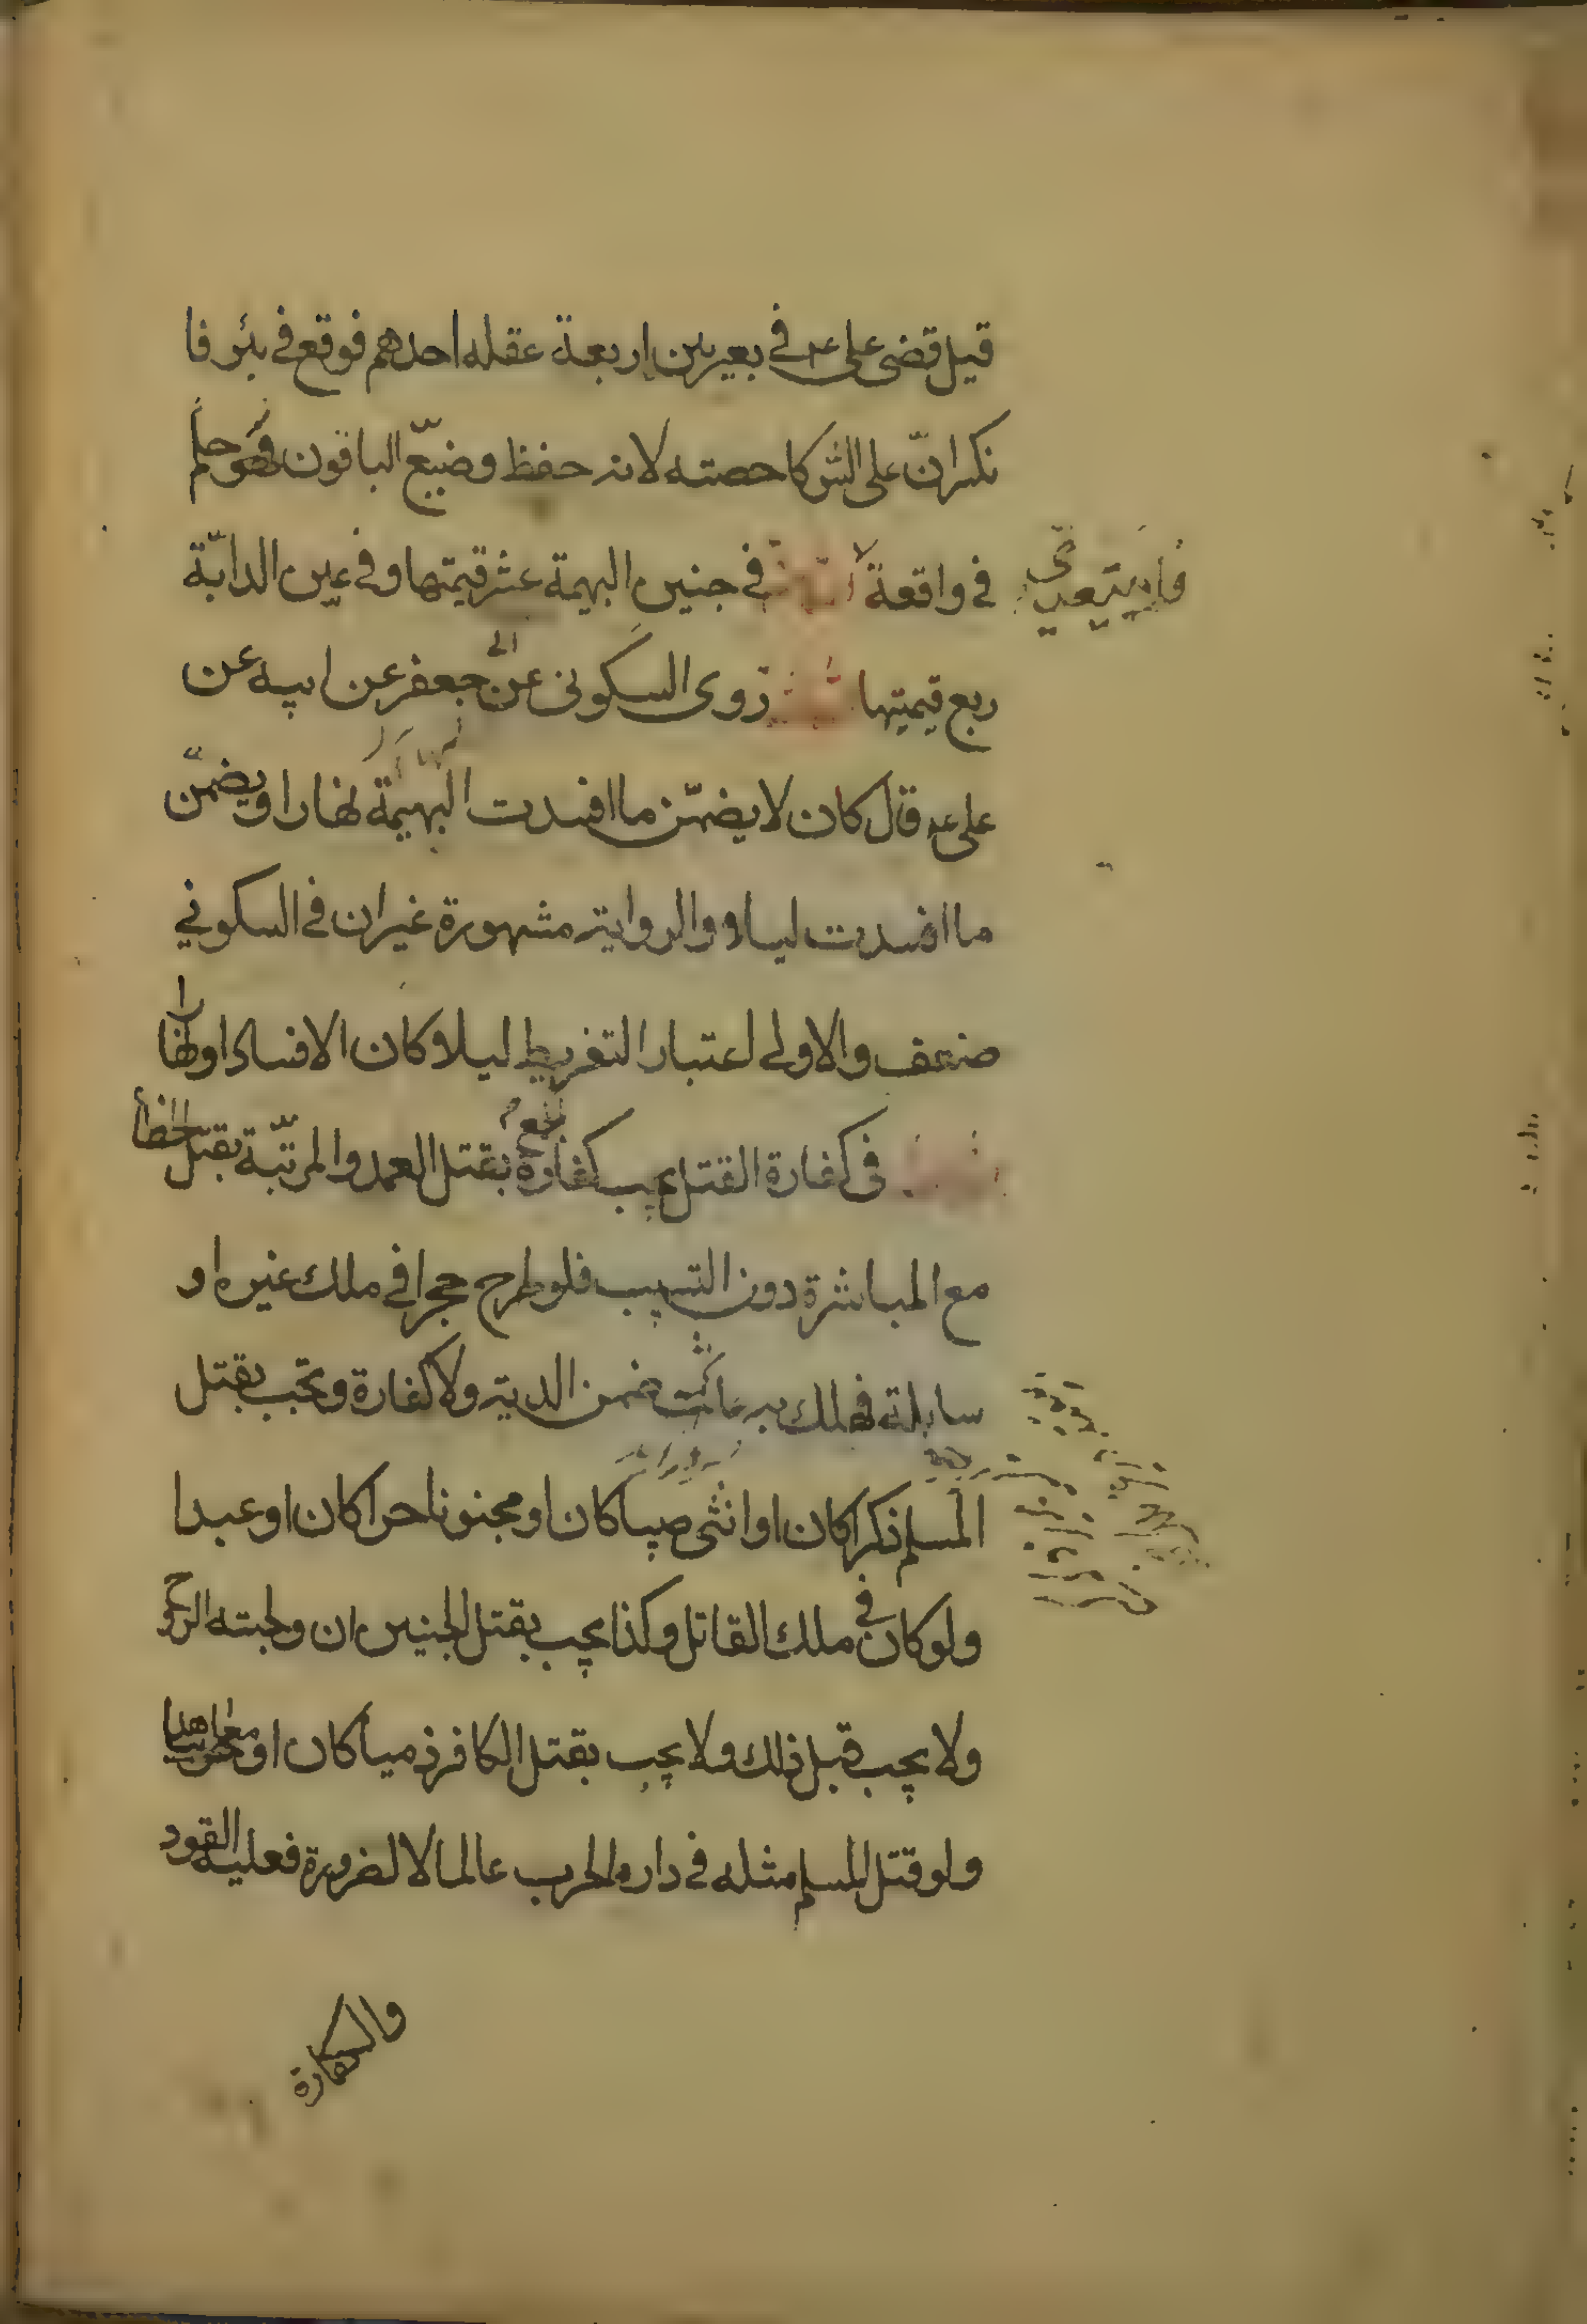 قيل قضى على عم في بعير بين اربعة عقله احدهم فوقع في بئر فا
نكسران على الشركا حصته لانه حفظ وضيع الباقون وهو حكم
في واقعة فلا يتعدى
في جنين البهيمة عشر قيمتها وفي عين الدابة
ربع قيميتها روى السكوني عن جعفر عن ابيه عن
على عم قال كان لا يضمن ما افسدت البهيمة نهارا ويضمن
ما افسدت ليلا والرواية مشهورة غير ان في السكوني
ضعف والاولى اعتبار التفريط ليلا وكان الافساد او نهارا
في كفارة القتل يجب كفارة الجمع بقتل العمد والمرتبة بقتل الخطأ
مع المباشرة دون التسبيب فلو طرح حجرا في ملك غيره او
سابلة فهلك به ضمن الدية ولا كفارة وتجب بقتل
المسلم ذكرا كان او انثى صبيا كان او مجنونا حرا كان او عبدا
ولو كان في ملك القاتل وكذا يجب بقتل الجنين ان ولجته الروح
ولا يجب قبل ذلك ولا يجب بقتل الكافر ذميا كان او معاهدا
ولو قتل المسلم مثله في دار الحرب عالما لا لضرورة فعليه القود
والكفارة